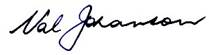 Val Johanson